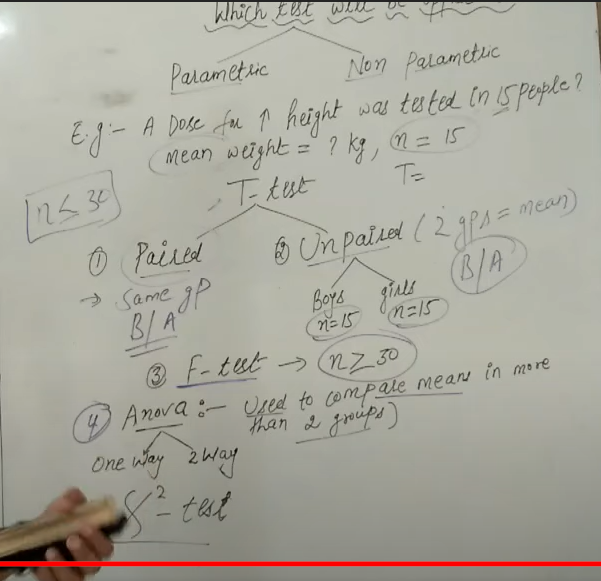 Which test will be
Parametric
Non Parametric
E.g:- A Dose for ↑ height was tested in 15 people?
mean weight = ? kg, n = 15
T=
n ≤ 30
T- test
① Paired
② Unpaired (2 gps = mean)
→ Same gp
B/A
Boys
n=15
girls
n=15
B/A
③ F-test → n ≥ 30
④ Anova :- Used to compare means in more
than 2 groups)
One way
2 way
X² - test